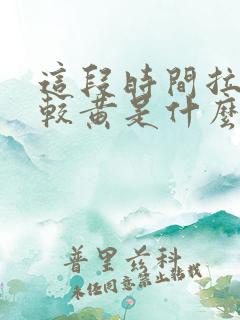 這段時間拉
較黃是什麼
普里兹科
未经同意禁止转载